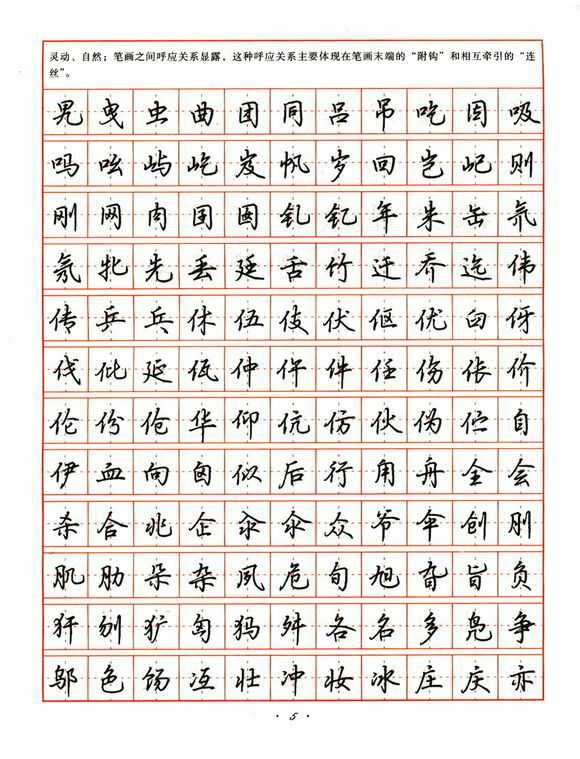 灵动、自然；笔画之间呼应关系显露，这种呼应关系主要体现在笔画末端的“附钩”和相互牵引的“连
丝”。
旯曳虫曲团同吕吊吃因吸
吗吆屿屹岌帆岁回岂屺则
刚网肉囝囡钆钇年朱缶氘
氖牝先丢廷舌竹迁乔迄伟
传乒乓休伍伎伏伛优臼伢
伐仳延佤仲仵件任伤伥价
伦份伧华仰伉仿伙伪伫自
伊血向囟似后行甪舟全会
杀合兆企汆氽众爷伞创刖
肌肋朵杂夙危旬旭旮旨负
犴刎犷匈犸舛各名多凫争
邬色饧冱壮冲妆冰庄庆亦
·5·